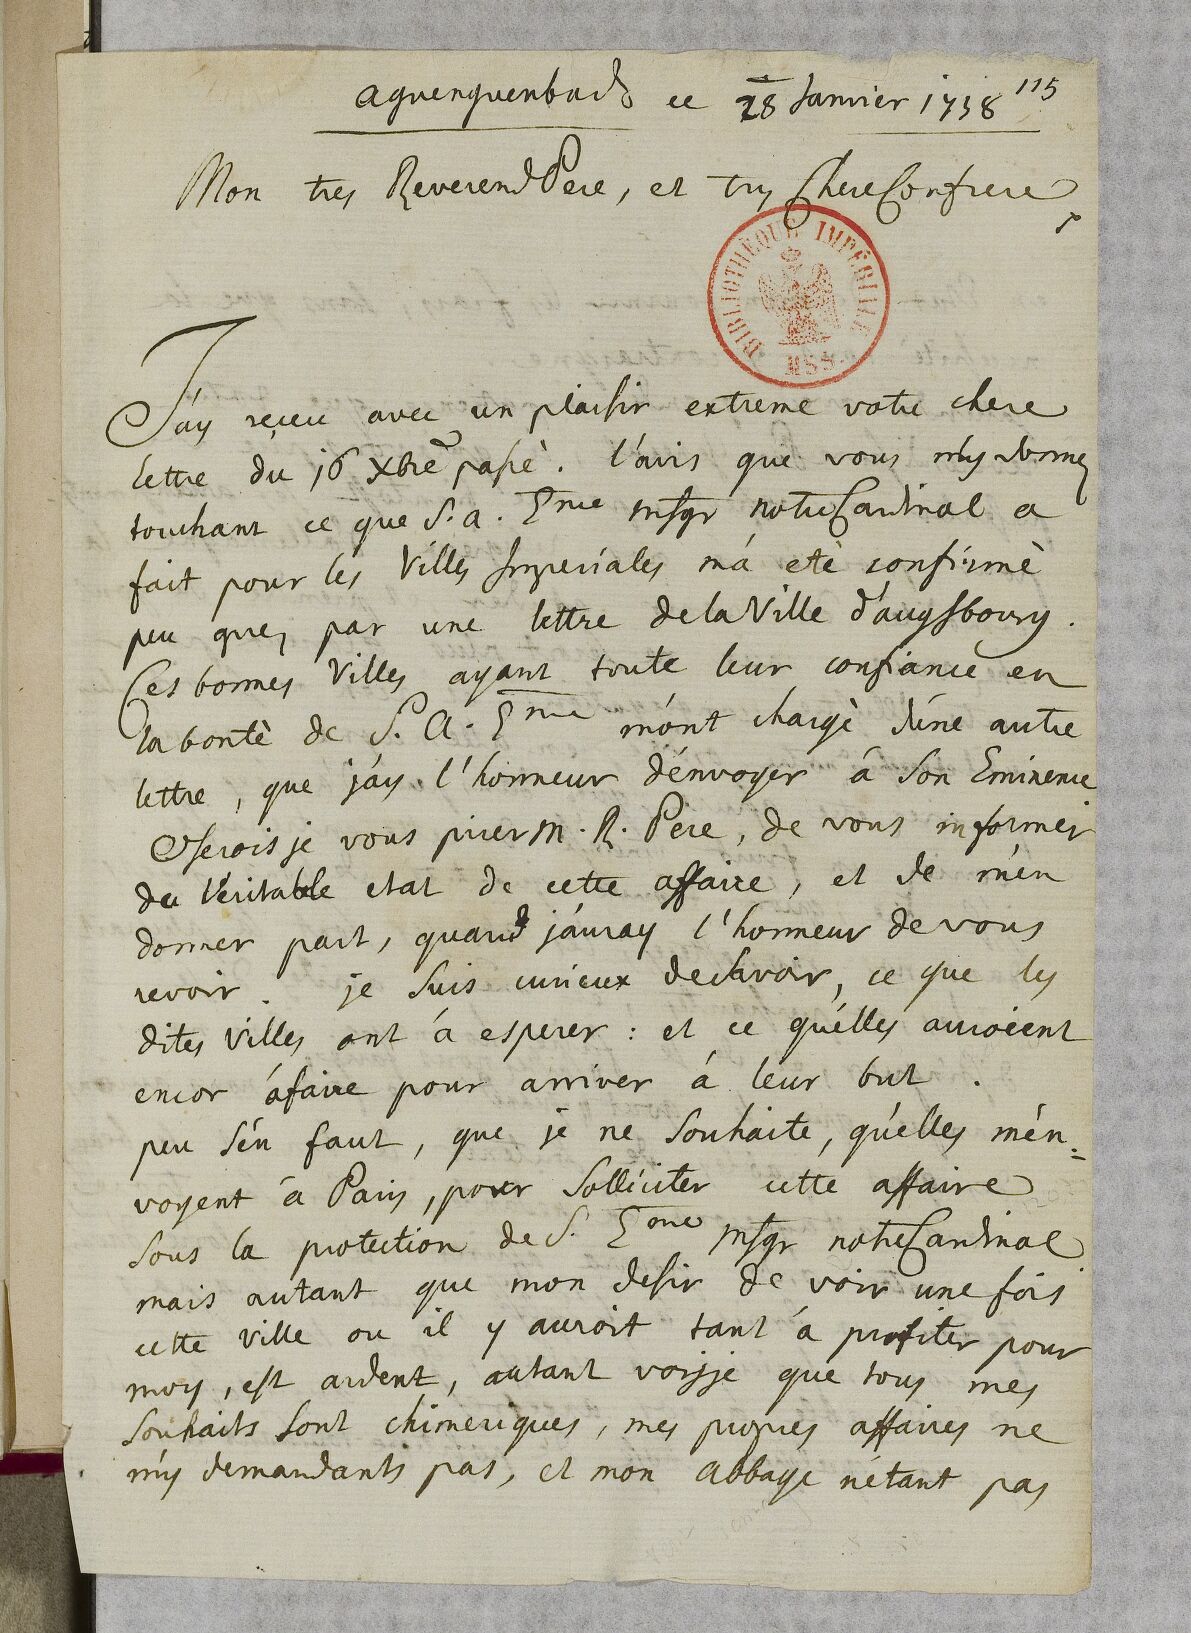 aguenguenbach ce 28 Janvier 1738 115
Mon tres Reverend Pere, et tres Chere Confrere,
BIBLIOTHÈQUE IMPÉRIALE
MSS.
J'ay reçeu avec un plaisir extreme votre chere
lettre du 16 Xbre passè. l'avis que vous m'y donnez
touchant ce que S. a. Eme msgr notre Cardinal a
fait pour les Villes Imperiales m'a etè confirmè
peu que, par une lettre de la Ville d'augsbourg.
Ces bonnes Villes ayant toute leur confiance en
la bontè de S. A. Eme m'ont chargè d'une autre
lettre, que j'ay l'honneur d'envoyer á Son Eminence
Oserois je vous prier M. R. Pere, de vous informer
du Veritable etat de cette affaire, et de m'en
donner part, quand j'auray l'honneur de vous
revoir. je suis curieux de savoir, ce que les
dites Villes ont á esperer: et ce qu'elles auroient
encor á faire pour arriver á leur but.
peu s'en faut, que je ne souhaite, qu'elles m'en=
voyent á Paris, pour solliciter cette affaire
sous la protection de S. Eme msgr notre Cardinal
mais autant que mon desir de voir une fois
cette ville ou il y auroit tant á profiter pour
moy, est ardent, autant voisje que tous mes
souhaits sont chimeriques, mes propres affaires ne
m'y demandants pas, et mon abbaye n'etant pas